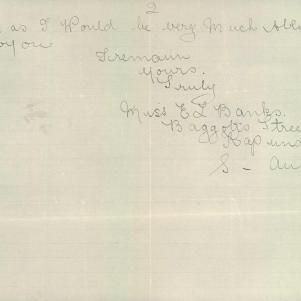 2
as I Would be very Much
you
I remain
Yours.
Truly
Miss E L Banks.
Baggots Stree
Kapund
S - Au